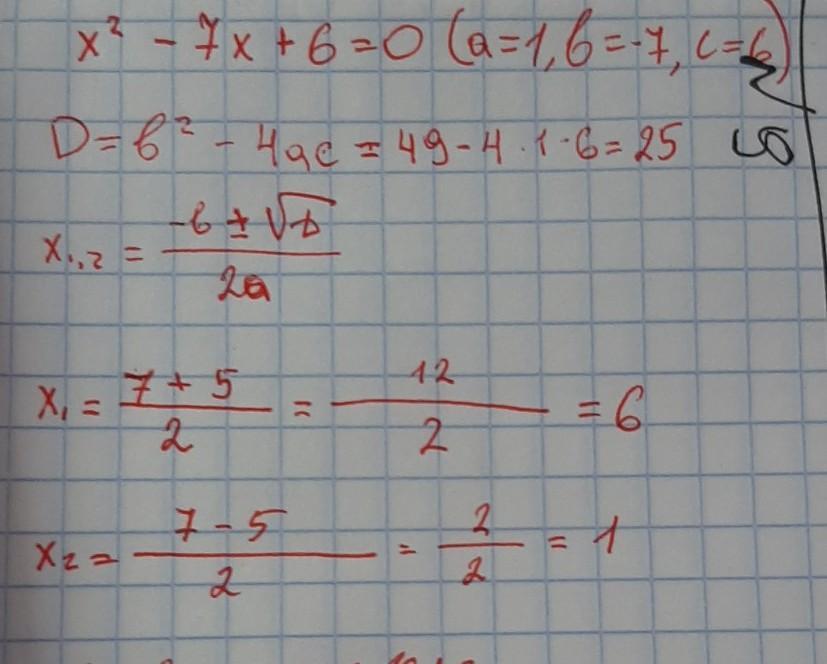 x² - 7x + 6 = 0 (a=1, b=-7, c=6)
D = b² - 4ac = 49 - 4 · 1 · 6 = 25
x₁,₂ = (-b ± √D) / 2a
x₁ = (7 + 5) / 2 = 12 / 2 = 6
x₂ = (7 - 5) / 2 = 2 / 2 = 1